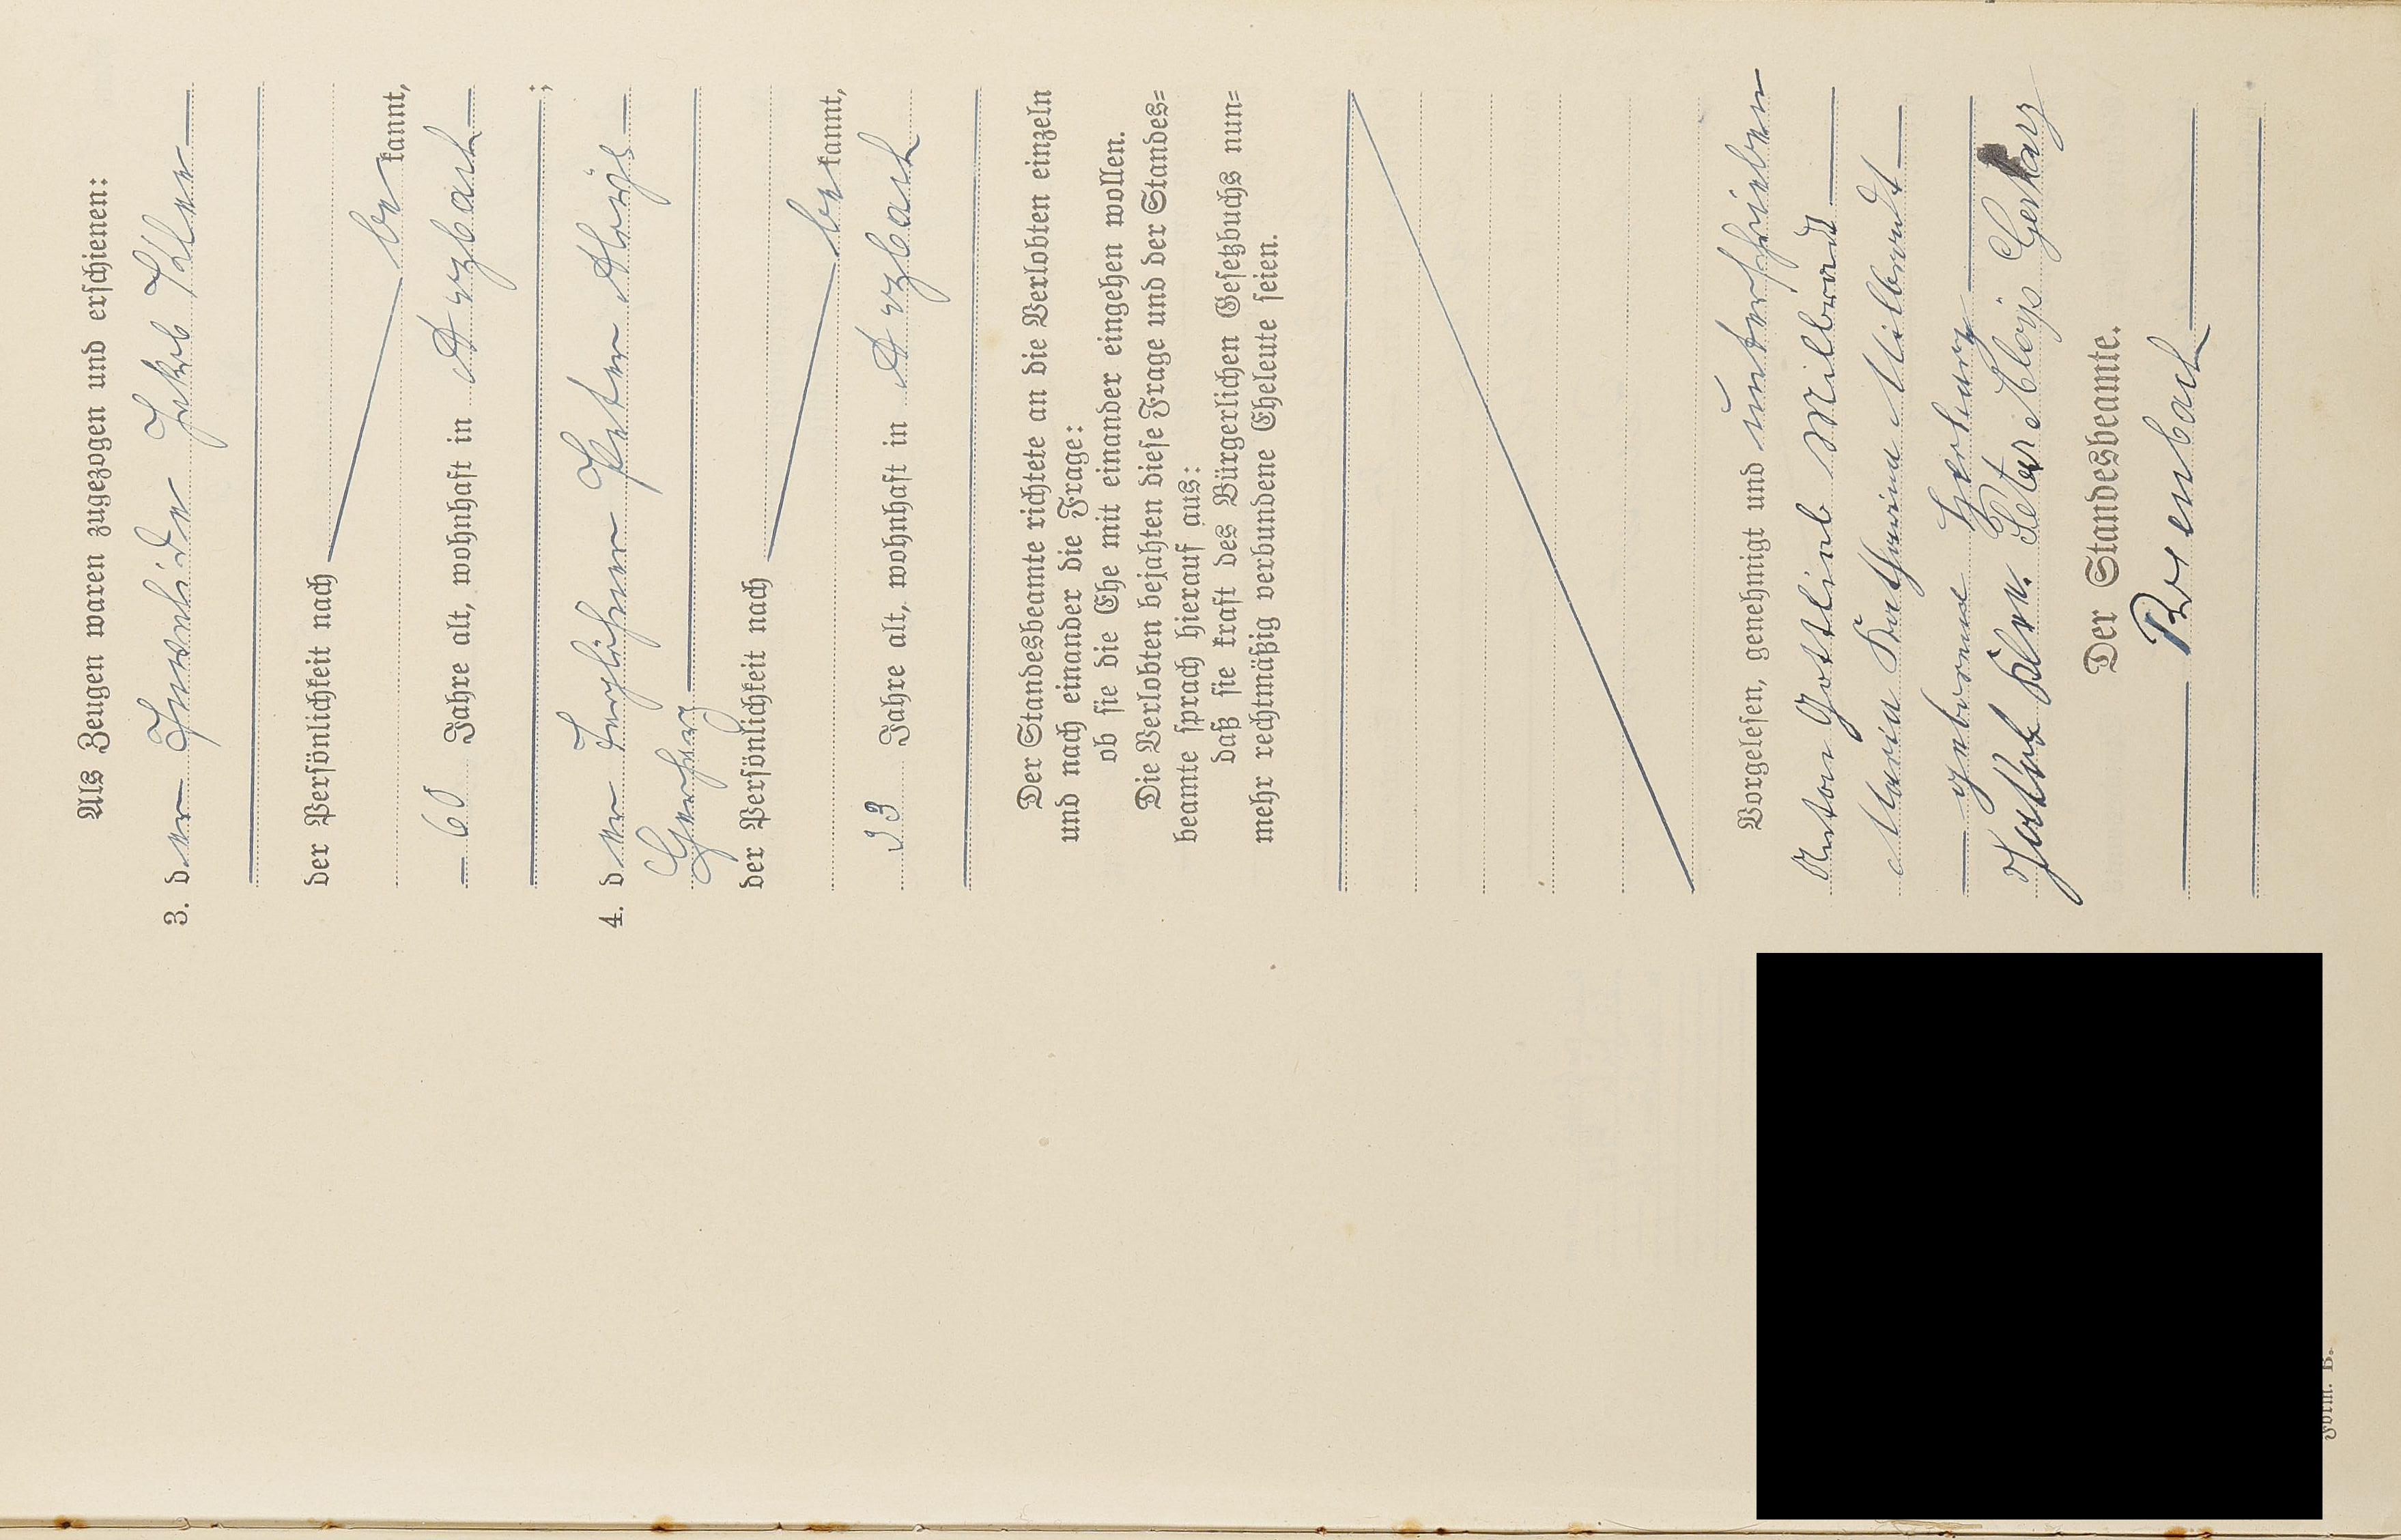 Als Zeugen waren zugezogen und erschienen:
3. der Invalide Jakob
der Persönlichkeit nach
be kannt,
60 Jahre alt, wohnhaft in Arzbach
;
4. der Peter Aloys
Gerharz
der Persönlichkeit nach
be kannt,
33 Jahre alt, wohnhaft in Arzbach
Der Standesbeamte richtete an die Verlobten einzeln
und nach einander die Frage:
ob sie die Ehe mit einander eingehen wollen.
Die Verlobten bejahten diese Frage und der Standes=
beamte sprach hierauf aus:
daß sie kraft des Bürgerlichen Gesetzbuchs nun=
mehr rechtmäßig verbundene Eheleute seien.
Vorgelesen, genehmigt und unterschrieben
Anton Gottlieb Milbradt
Maria Katharina Milbradt
geborene Gerharz
Jakob Peter Aloys Gerharz
Der Standesbeamte.
Rosenbach
Form. B.